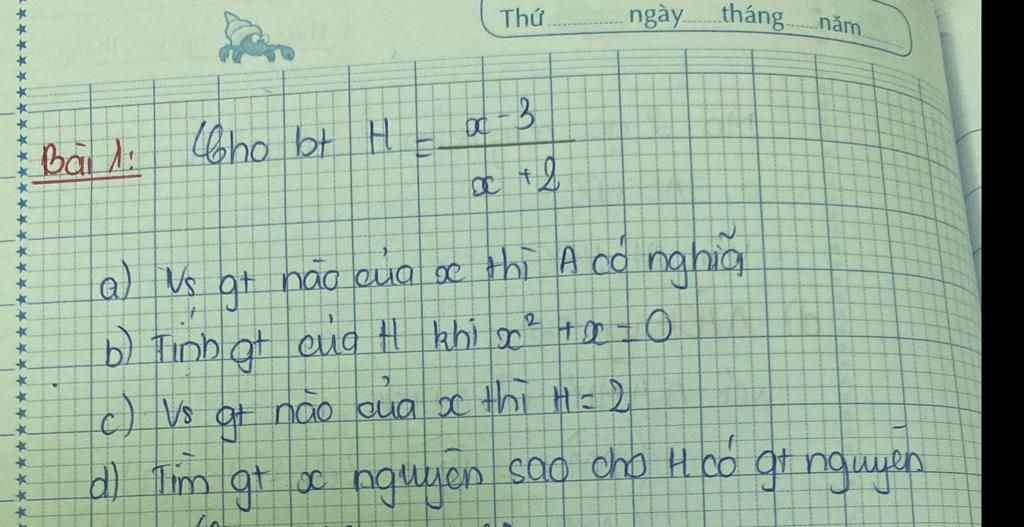 Thứ ngày tháng năm
Bài 1: Cho bt H = x - 3 / x + 2
a) Vs gt nào của x thì A có nghĩa
b) Tính gt của H khi x² + x = 0
c) Vs gt nào của x thì H = 2
d) Tìm gt x nguyên sao cho H có gt nguyên